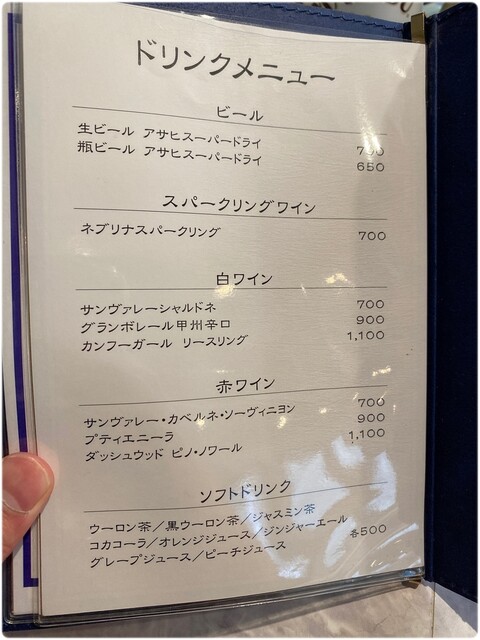 ドリンクメニュー
ビール
生ビール アサヒスーパードライ 700
瓶ビール アサヒスーパードライ 650
スパークリングワイン
ネブリナスパークリング 700
白ワイン
サンヴァレーシャルドネ 700
グランポレール甲州辛口 900
カンフーガール リースリング 1,100
赤ワイン
サンヴァレー・カベルネ・ソーヴィニヨン 700
プティエニーラ 900
ダッシュウッド ピノ・ノワール 1,100
ソフトドリンク
ウーロン茶／黒ウーロン茶／ジャスミン茶
コカコーラ／オレンジジュース／ジンジャーエール 各500
グレープジュース／ピーチジュース